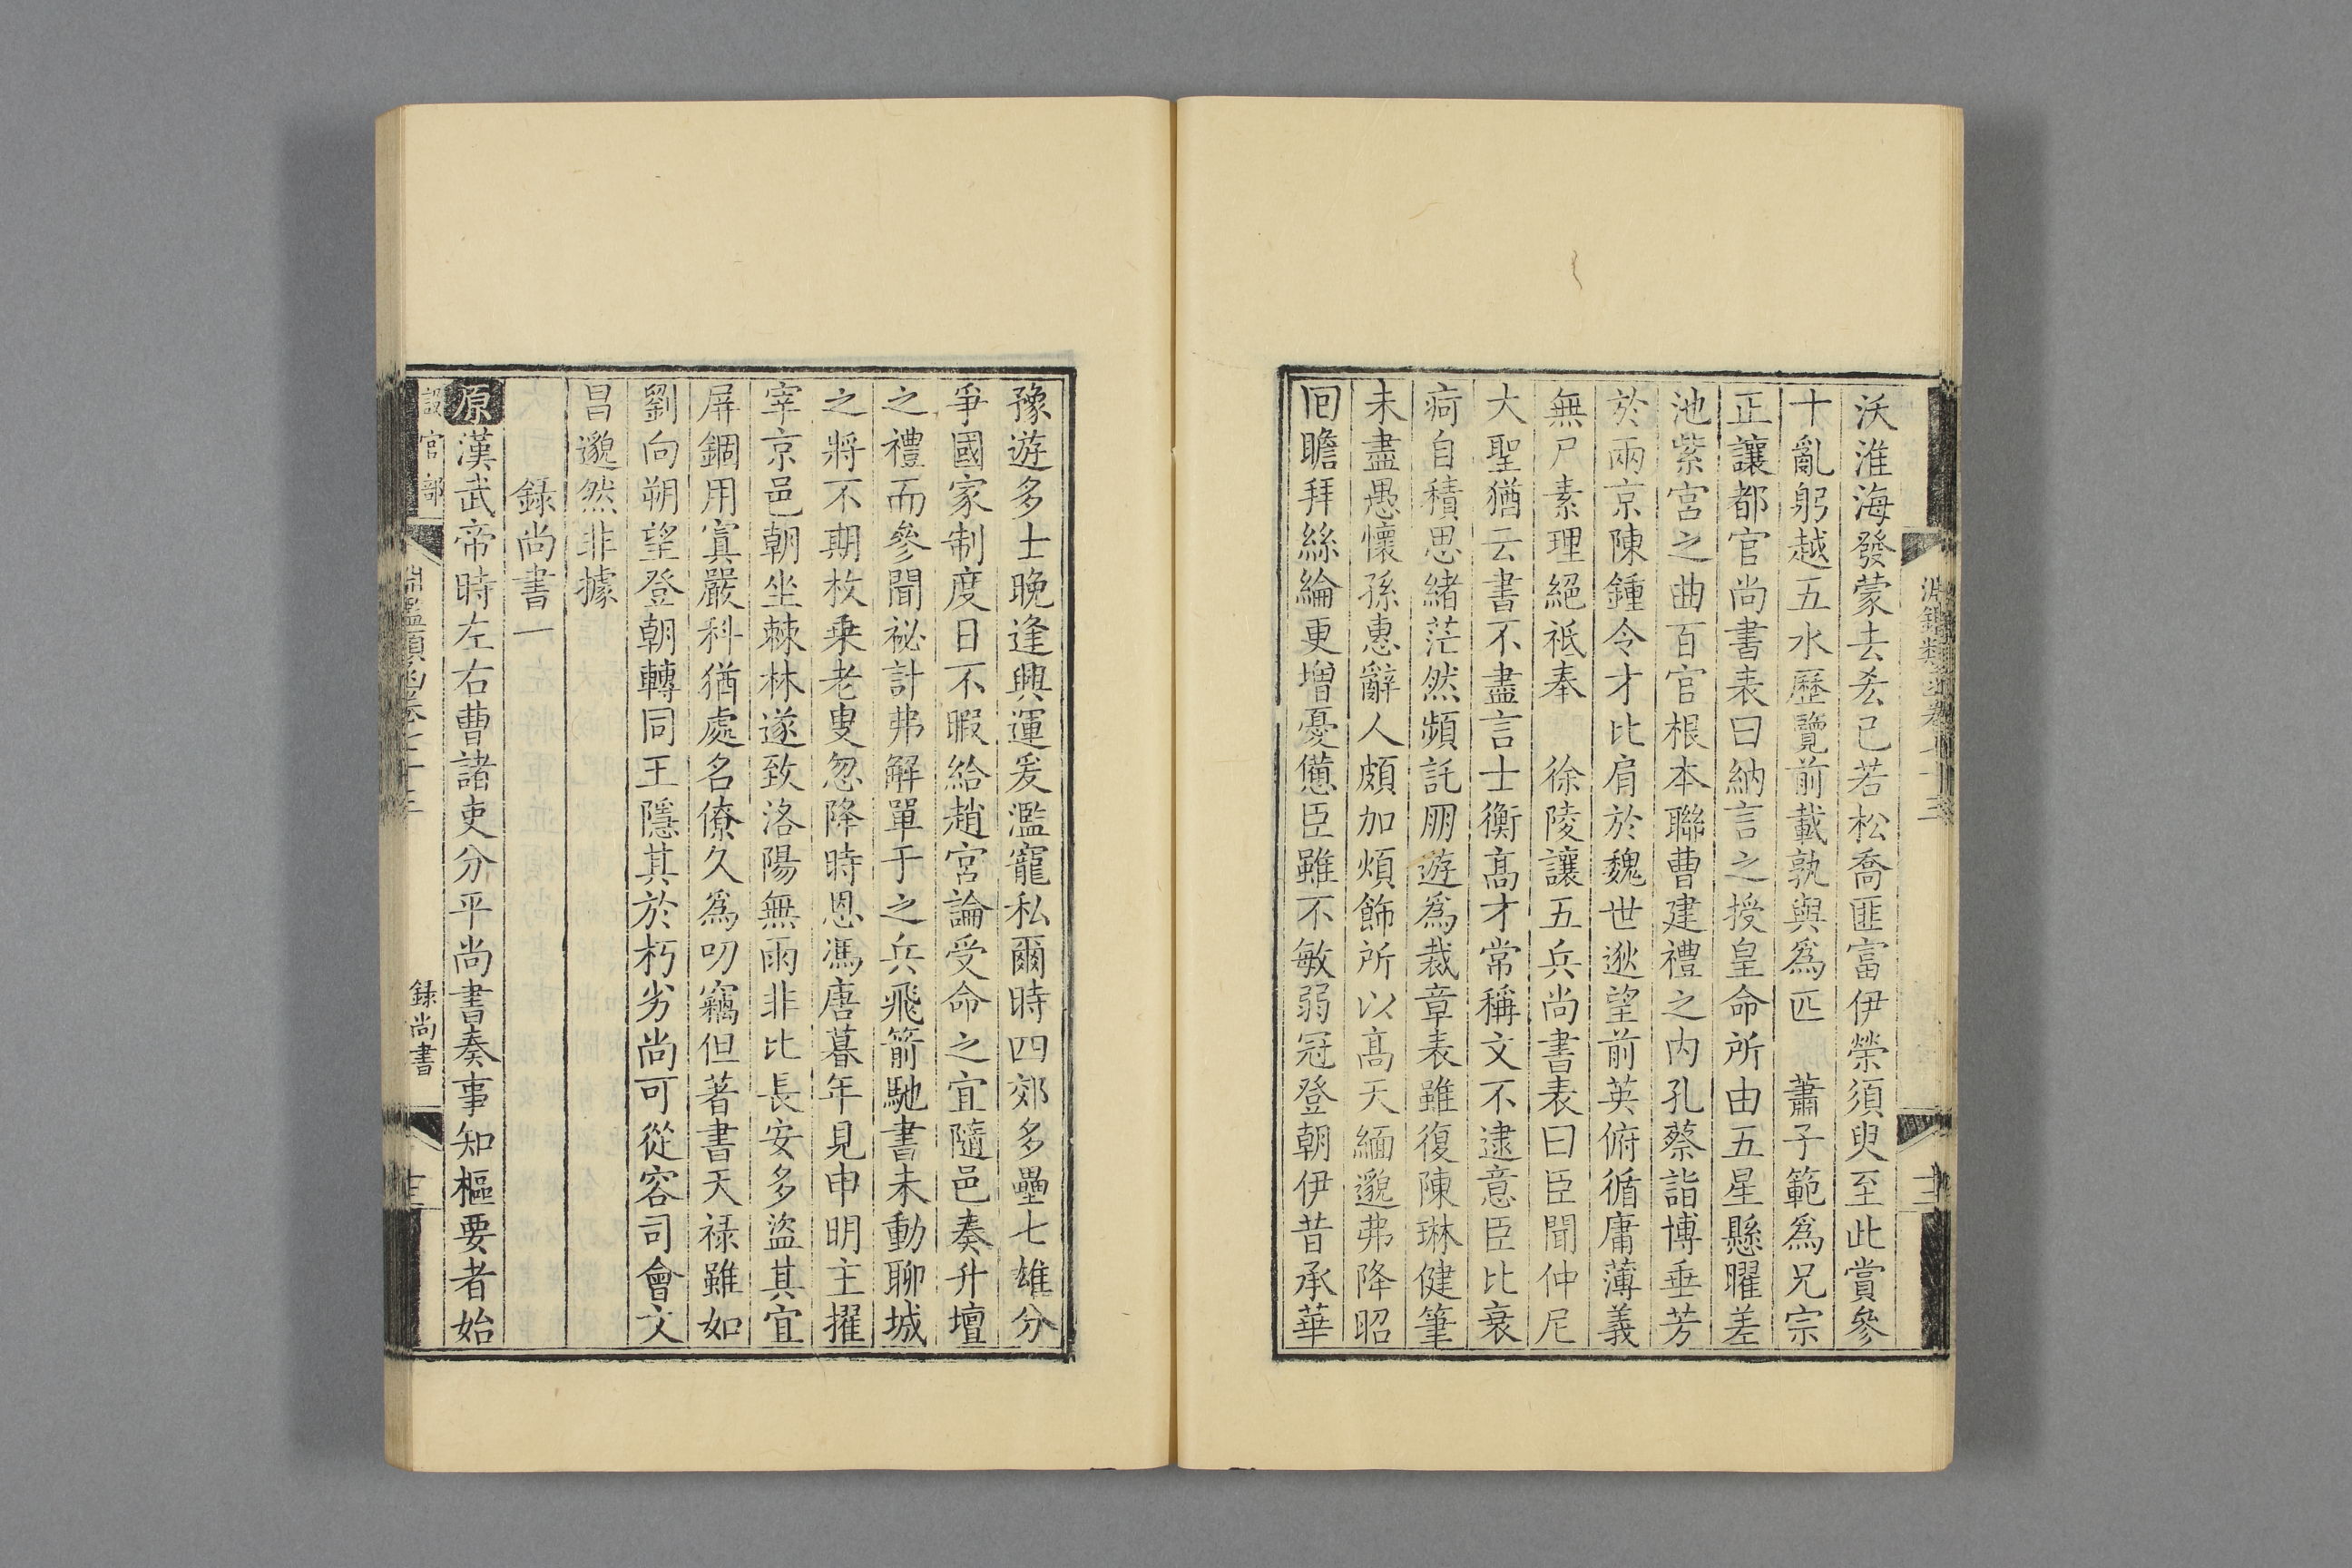 淵鑑類函卷七十三
十二
沃淮海發蒙去叅已若松喬匪富伊榮須臾至此賞參
十亂躬越五水歷覽前載孰與爲匹 蕭子範爲兄宗
正讓都官尚書表曰納言之授皇命所由五星懸曜差
池紫宮之曲百官根本聯曹建禮之内孔蔡詣博垂芳
於兩京陳鍾令才比肩於魏世逖望前英俯循庸薄義
無尸素理絕祗奉 徐陵讓五兵尚書表曰臣聞仲尼
大聖猶云書不盡言士衡高才常稱文不逮意臣比衰
痾自積思緒茫然頻託朋遊爲裁章表雖復陳琳健筆
未盡愚懷孫惠辭人頗加煩飾所以高天緬邈弗降昭
回瞻拜絲綸更增憂憊臣雖不敏弱冠登朝伊昔承華
豫遊多士晚逢興運爰濫寵私爾時四郊多壘七雄分
爭國家制度日不暇給趙宮論受命之宜隨邑奏升壇
之禮而參聞祕計弗解單于之兵飛箭馳書未動聊城
之將不期枚乗老叟忽降時恩馮唐暮年見申明主擢
宰京邑朝坐棘林遂致洛陽無雨非比長安多盜其宜
屏錮用寘嚴科猶處名僚久爲叨竊但著書天禄雖如
劉向朔望登朝轉同王隱其於朽劣尚可從容司會文
昌邈然非據
録尚書一
原漢武帝時左右曹諸吏分平尚書奏事知樞要者始
設官部
淵鑑類函卷七十三
録尚書
十三